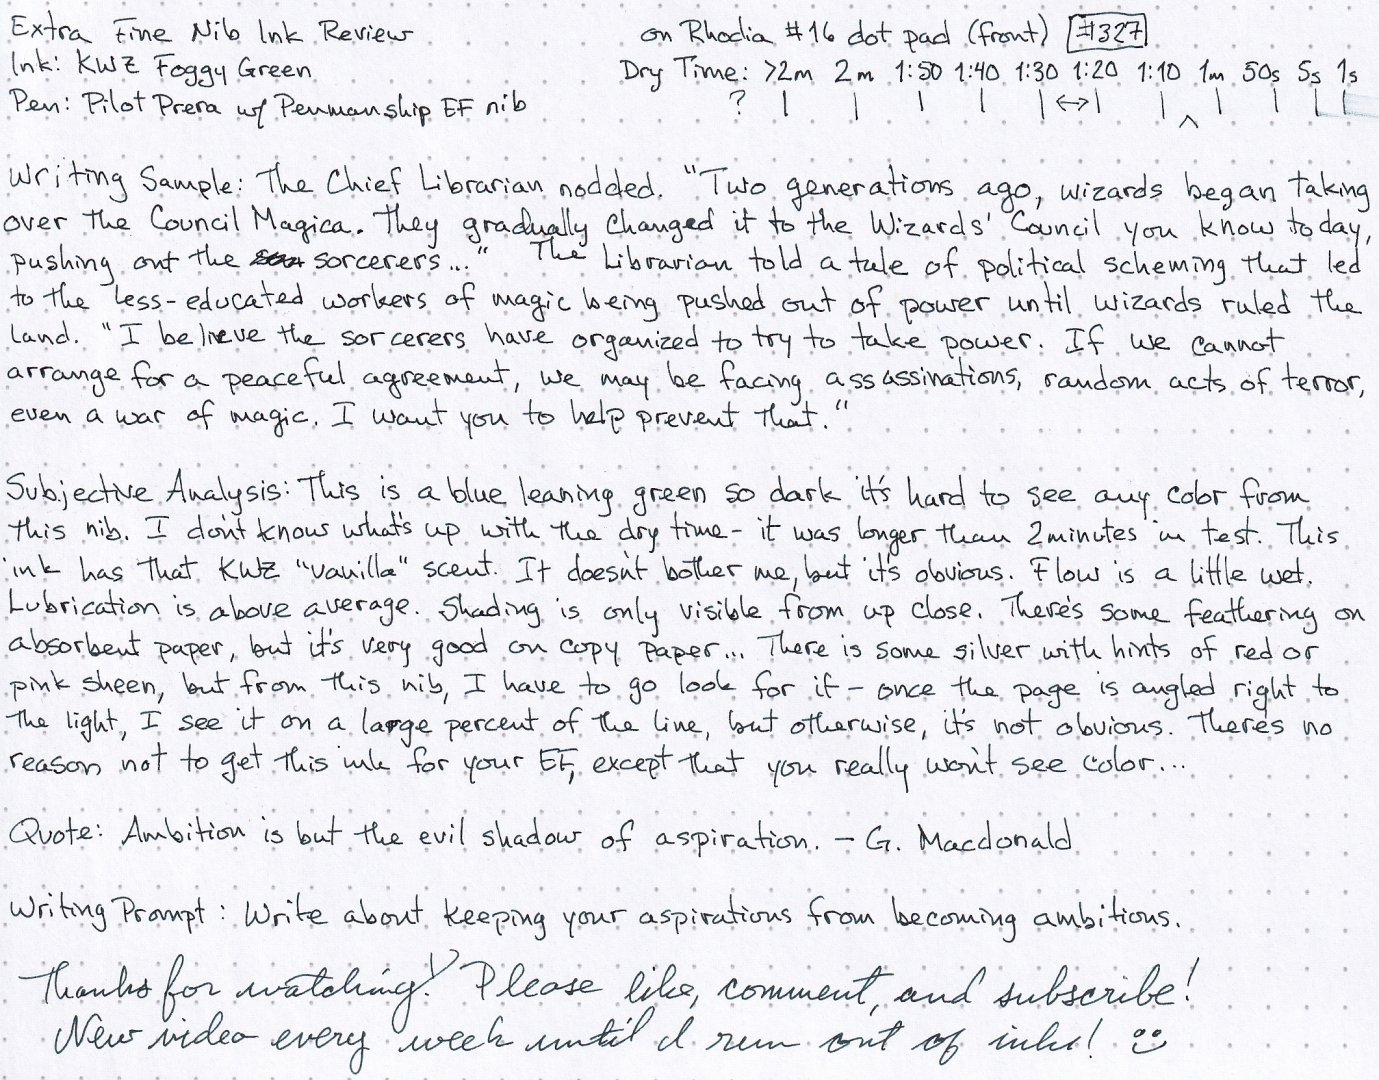 Extra Fine Nib Ink Review on Rhodia #16 dot pad (front) #327
Ink: KWZ Foggy Green Dry Time: >2m 2m 1:50 1:40 1:30 1:20 1:10 1m 50s 5s 1s
Pen: Pilot Prera w/ Penmanship EF nib ? | | | | | ↔ | | ^ | | | |
Writing Sample: The Chief Librarian nodded. "Two generations ago, wizards began taking
over the Council Magica. They gradually changed it to the Wizards' Council you know today,
pushing out the sorcerers..." The Librarian told a tale of political scheming that led
to the less-educated workers of magic being pushed out of power until wizards ruled the
land. "I believe the sorcerers have organized to try to take power. If we cannot
arrange for a peaceful agreement, we may be facing assassinations, random acts of terror,
even a war of magic. I want you to help prevent that."
Subjective Analysis: This is a blue leaning green so dark it's hard to see any color from
this nib. I don't know what's up with the dry time - it was longer than 2 minutes in test. This
ink has that KWZ "vanilla" scent. It doesn't bother me, but it's obvious. Flow is a little wet.
Lubrication is above average. Shading is only visible from up close. There's some feathering on
absorbent paper, but it's very good on copy paper... There is some silver with hints of red or
pink sheen, but from this nib, I have to go look for it - once the page is angled right to
the light, I see it on a large percent of the line, but otherwise, it's not obvious. There's no
reason not to get this ink for your EF, except that you really won't see color...
Quote: Ambition is but the evil shadow of aspiration. - G. Macdonald
Writing Prompt: Write about keeping your aspirations from becoming ambitions.
Thanks for watching! Please like, comment, and subscribe!
New video every week until I run out of inks! :)